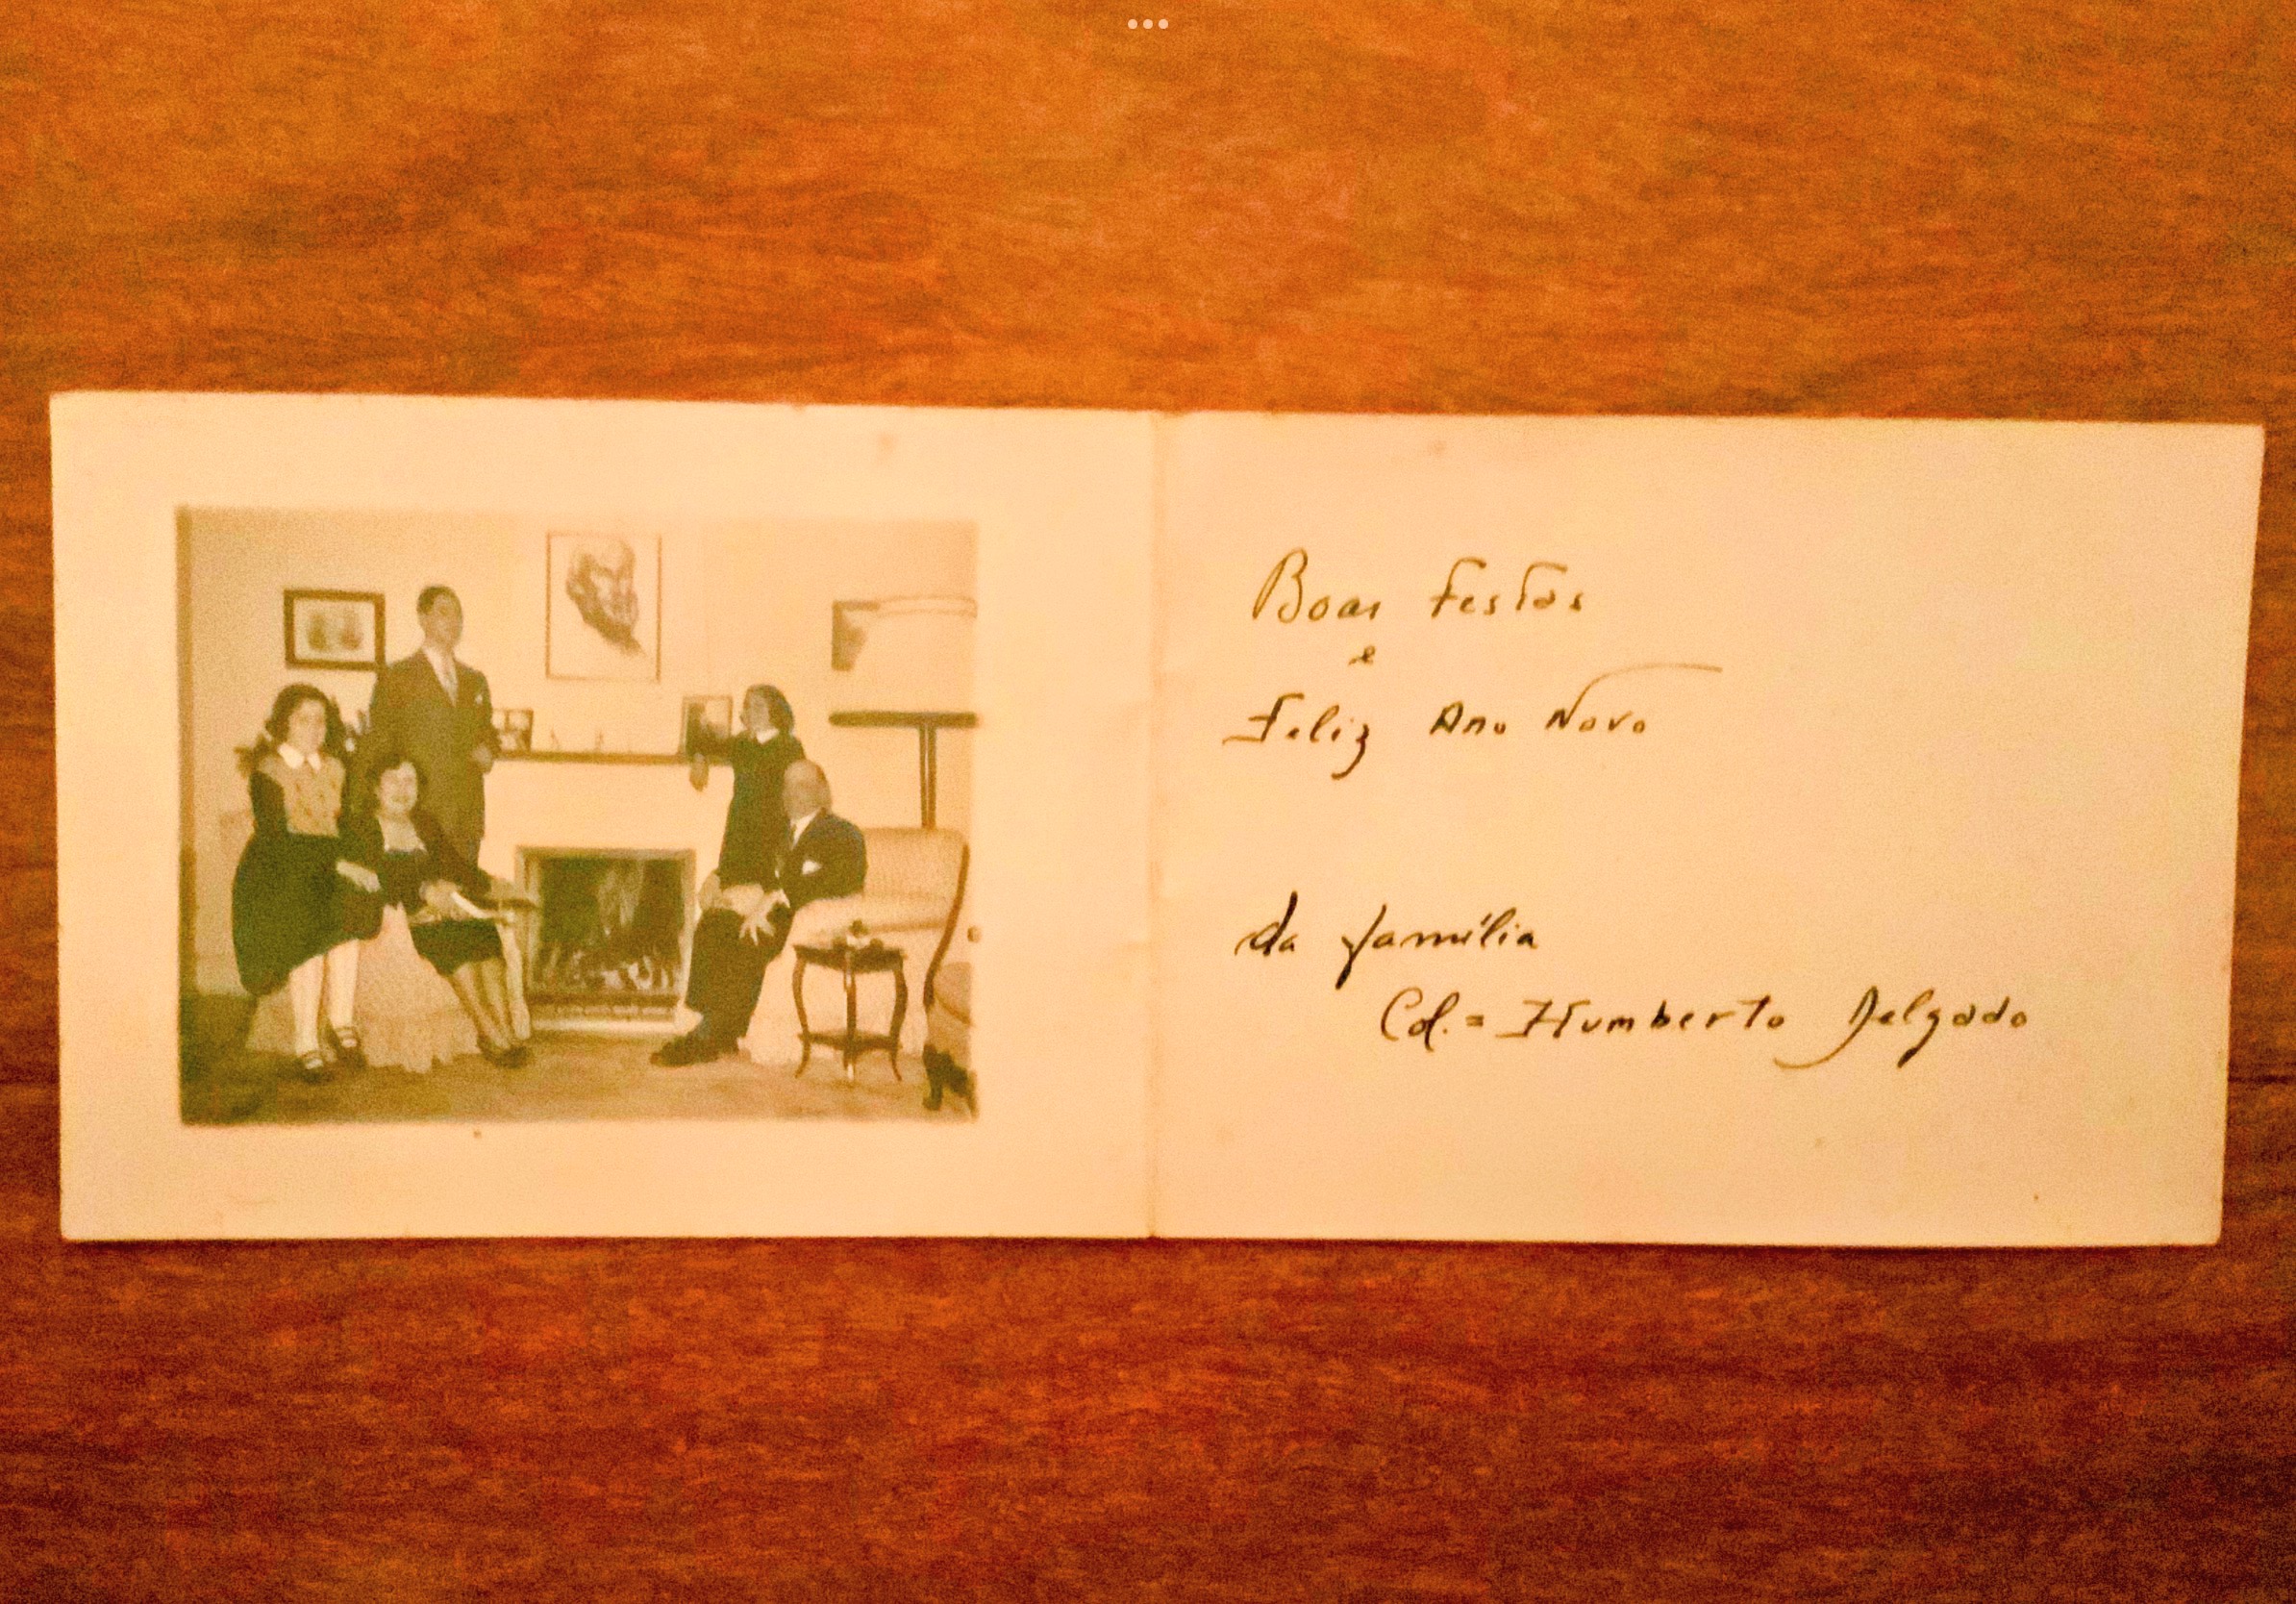 Boas Festas
e
Feliz Ano Novo
da família
Col.= Humberto Delgado